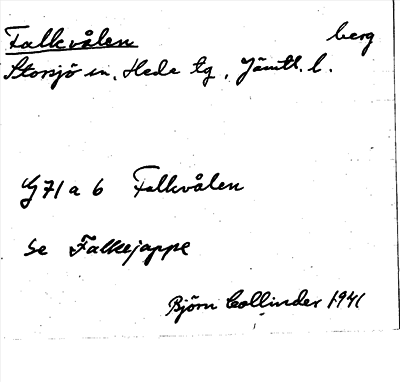 Falkvålen berg
Storsjö sn. Hede tg, Jämtl. l.
G 71 a b Falkvålen
Se Falkejappe
Björn Collinder 1941